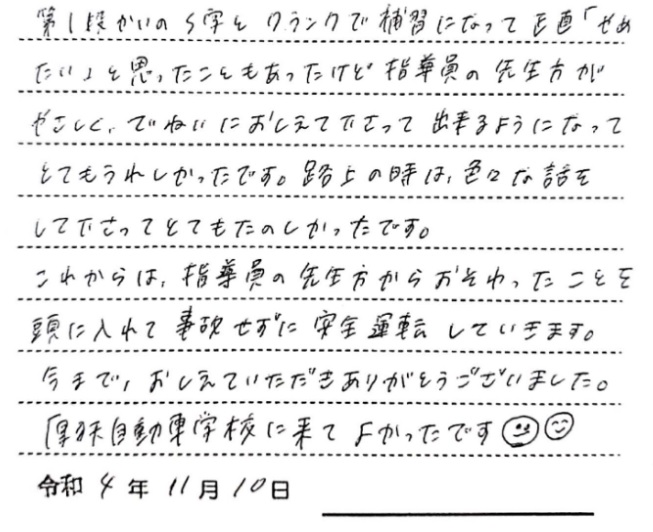 第1段かいのS字とクランクで補習になって正直「やめ
たい」と思ったこともあったけど指導員の先生方が
やさしく、でねいにおしえて下さって出来るようになって
とてもうれしかったです。路上の時は、色々な話を
して下さってとてもたのしかったです。
これからは、指導員の先生方からおそわったことを
頭に入れて事故せずに安全運転していきます。
今まで、おしえていただきありがとうございました。
自動車学校に来てよかったです
令和4年11月10日